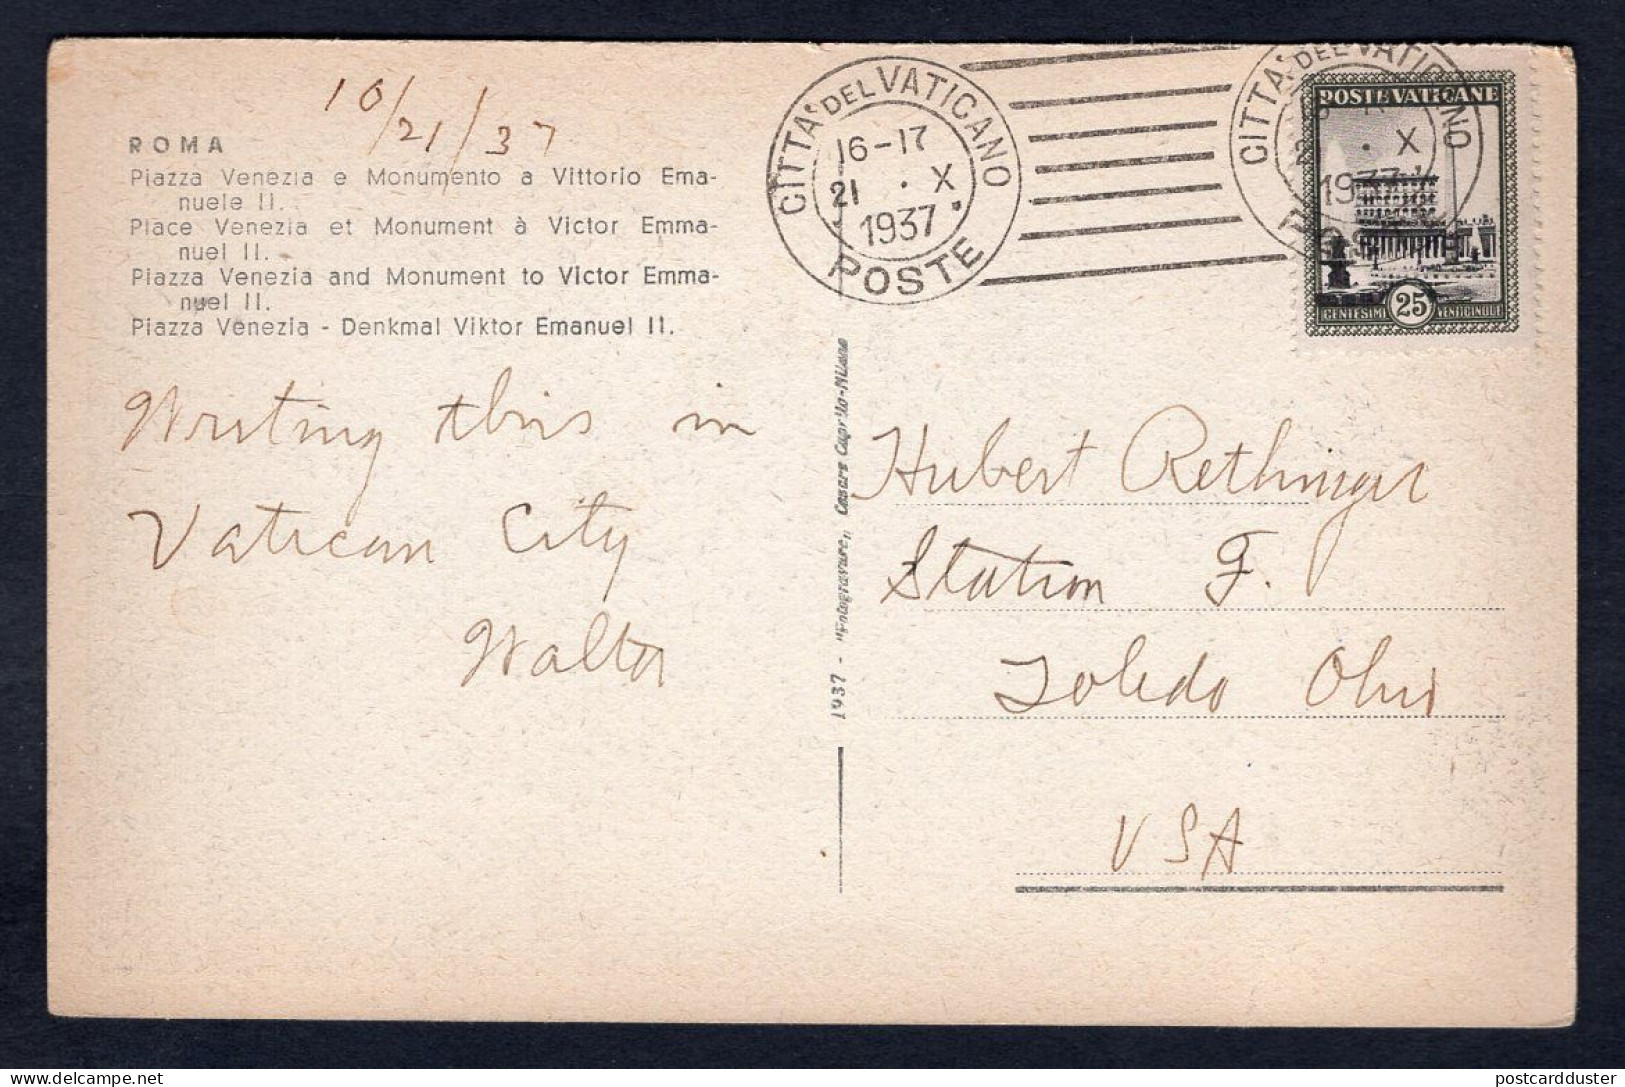 10/21/37
ROMA
Piazza Venezia e Monumento a Vittorio Ema-
nuele II.
Place Venezia et Monument à Victor Emma-
nuel II.
Piazza Venezia and Monument to Victor Emma-
nuel II.
Piazza Venezia - Denkmal Viktor Emanuel II.
Writing this in
Vatican City
Walter
1937 - "Fotogravure" Cesare Capello-Milano
CITTA' DEL VATICANO
16-17
21 . X
1937
POSTE
CITTA' DEL VATICANO
21 . X
1937
POSTE VATICANE
CENTESIMI 25 VENTICINQUE
Hubert Rethinger
Station F.
Toledo Ohio
USA
postcardduster